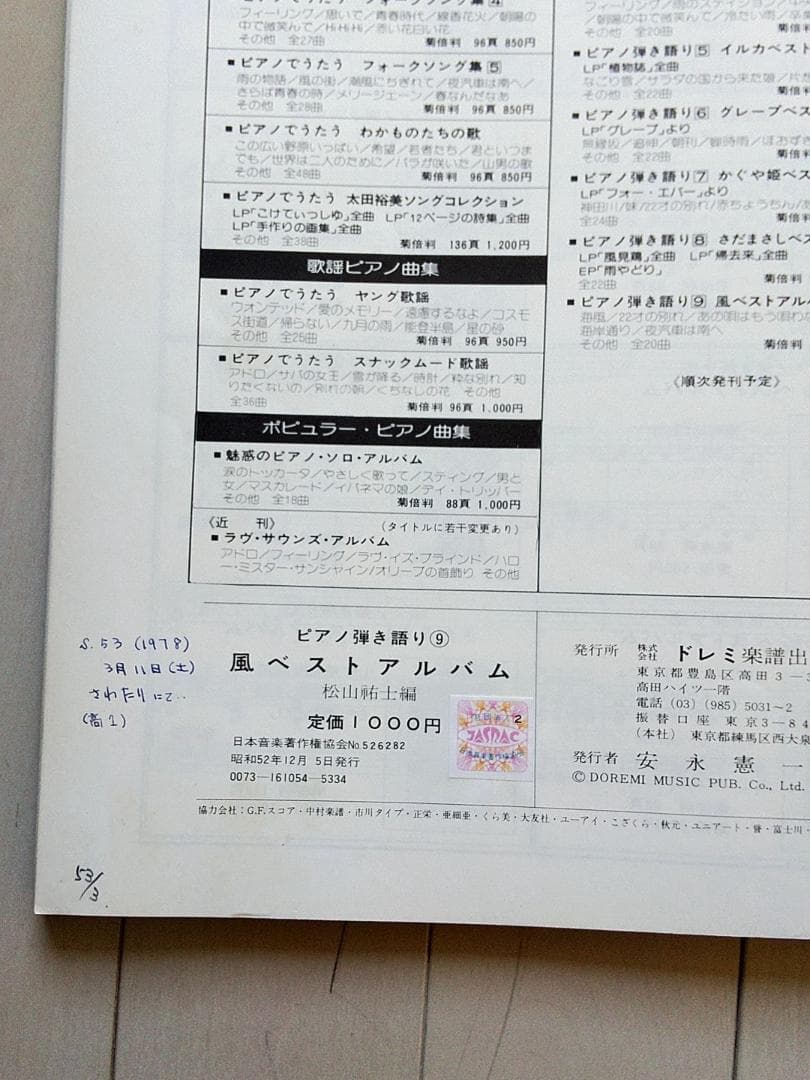 フィーリング／思いで／青春時代／線香花火／朝陽の
中で微笑んて／Hi・Hi・Hi／赤い花白い花
その他 全27曲 菊倍判 96頁 850円
■ピアノでうたう フォークソング集5
雨の物語／風の街／潮風にちぎれて／夜汽車は南へ／
さらば青春の時／メリージェーン／春なんだなあ
その他 全28曲 菊倍判 96頁 850円
■ピアノでうたう わかものたちの歌
この広い野原いっぱい／希望／若者たち／君といつま
でも／世界は二人のために／バラが咲いた／山男の歌
その他 全48曲 菊倍判 96頁 850円
■ピアノでうたう 太田裕美ソングコレクション
LP「こけてぃっしゆ」全曲 LP「12ページの詩集」全曲
LP「手作りの画集」全曲
その他 全38曲 菊倍判 136頁 1,200円
歌謡ピアノ曲集
■ピアノでうたう ヤング歌謡
ウォンテッド／愛のメモリー／遠慮するなよ／コスモ
ス街道／帰らない／九月の雨／能登半島／星の砂
その他 全25曲 菊倍判 96頁 950円
■ピアノでうたう スナックムード歌謡
アドロ／サバの女王／雪が降る／時計／粋な別れ／知
りたくないの／別れの朝／くちなしの花 その他
全36曲 菊倍判 96頁 1,000円
ポピュラー・ピアノ曲集
■魅惑のピアノ・ソロ・アルバム
涙のトッカータ／やさしく歌って／スティング／男と
女／マスカレード／イパネマの娘／デイ・トリッパー
その他 全18曲 菊倍判 88頁 1,000円
《近 刊》 (タイトルに若干変更あり)
■ラヴ・サウンズ・アルバム
アドロ／フィーリング／ラヴ・イズ・ブラインド／ハロ
ー・ミスター・サンシャイン／オリーブの首飾り その他
その他 全20曲 菊倍
■ピアノ弾き語り5 イルカベスト
LP「植物誌」全曲
なごり雪／サラダの国から来た娘
その他 全22曲 菊倍
■ピアノ弾き語り6 グレープベス
LP「グレープ」より
無縁坂／追伸／朝刊／縁切寺／ほおずき
その他 全22曲 菊倍
■ピアノ弾き語り7 かぐや姫ベス
LP「フォー・エバー」より
神田川／妹／22才の別れ／赤ちょうちん
全24曲 菊倍判
■ピアノ弾き語り8 さだまさしベス
LP「風見鶏」全曲 LP「帰去来」全曲
EP「雨やどり」
全22曲 菊倍
■ピアノ弾き語り9 風ベストアルバ
海風／22才の別れ／あの唄はもう唄わな
海岸通り／夜汽車は南へ
その他 全20曲 菊倍判
《順次発刊予定》
S.53 (1978)
3月11日(土)
さわたりにて‥
(高1)
53/3
ピアノ弾き語り⑨
風ベストアルバム
松山祐士編
定価1000円
日本音楽著作権協会No.526282
昭和52年12月 5日発行
0073-161054-5334
2
JASRAC
発行所 株式会社 ドレミ楽譜出
東京都豊島区高田3-3
高田ハイツ一階
電話 (03) (985) 5031~2
振替口座 東京3-84
(本社) 東京都練馬区西大泉
発行者 安永憲一
© DOREMI MUSIC PUB. Co., Ltd.
協力会社：G.F.スコア・中村楽譜・市川タイプ・正栄・亜細亜・くら美・大友社・ユーアイ・こざくら・秋元・ユニアート・誉・富士川・